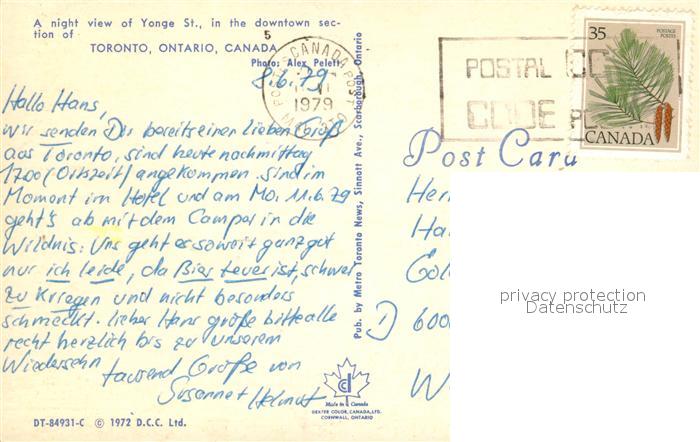 A night view of Yonge St., in the downtown sec-
tion of
TORONTO, ONTARIO, CANADA
Photo: Alex Pelett
5
8.6.79
Hallo Hans,
wir senden Dir bereits einer lieben Gruß
aus Toronto, sind heute nachmittag
1700 (Ortszeit) angekommen. sind im
Moment im Hotel und am Mo. 11.6.79
geht's ab mit dem Camper in die
Wildnis. Uns geht es soweit ganz gut
nur ich leide, da Bier teuer ist, schwer
zu kriegen und nicht besonders
schmeckt. lieber Hans grüße bitte alle
recht herzlich bis zu unserem
Wiedersehn
tausend Grüße von
Susanne + Helmut
DT-84931-C © 1972 D.C.C. Ltd.
Made in Canada
DEXTER COLOR, CANADA, LTD.
CORNWALL, ONTARIO
Pub. by Metro Toronto News, Sinnott Ave., Scarborough, Ontario
CANADA POST
1979
POSTAL CO
CODE
35
POSTAGE
POSTES
CANADA
Post Card
Her
Ha
D 600
W
privacy protection
Datenschutz